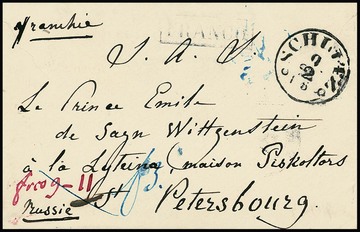 franchie
FRANCO
SCHLITZ
9
2
S. A. S.
Le Prince Emile
de Sayn Wittgenstein
à la Lyteina, maison Piskoltors
St Petersbourg.
frco 9-11
Russie